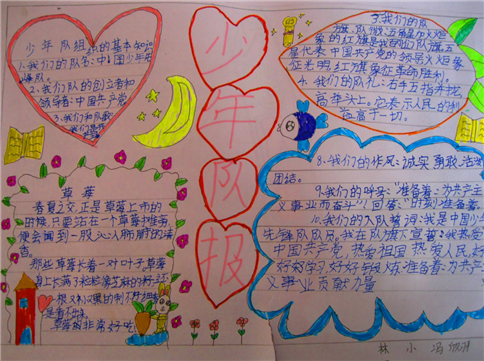 少年队报
少年队组织的基本知识
1.我们的队名:中国少年先
锋队。
2.我们队的创立者和
领导者:中国共产党
3.我们的队歌
7.我们的队
旗、队徽:五角星加火炬
象的红旗是我们的队旗,五
星代表中国共产党的领导,火炬象
征光明,红旗象征革命胜利。
4.我们的队礼:右手五指并拢,
高举头上。它表示人民的利
益高于一切。
草莓
春夏之交,正是草莓上市的
时候,只要站在一个草莓摊旁,
便会闻到一股沁人心脾的清
香。
那些草莓长着一对叶子,草莓
身上长满了
草莓的非常好吃
6
8.我们的作风:诚实、勇敢、活泼、
团结。
9.我们的呼号:"准备着:为共产主
义事业而奋斗!"回答:"时刻准备着。"
10.我们的入队誓词:我是中国少年
先锋队队员,我在队旗下宣誓:我热爱
中国共产党,热爱祖国,热爱人民,好
好学习,好好锻炼,准备着:为共产主
义事业贡献力量
林小冯